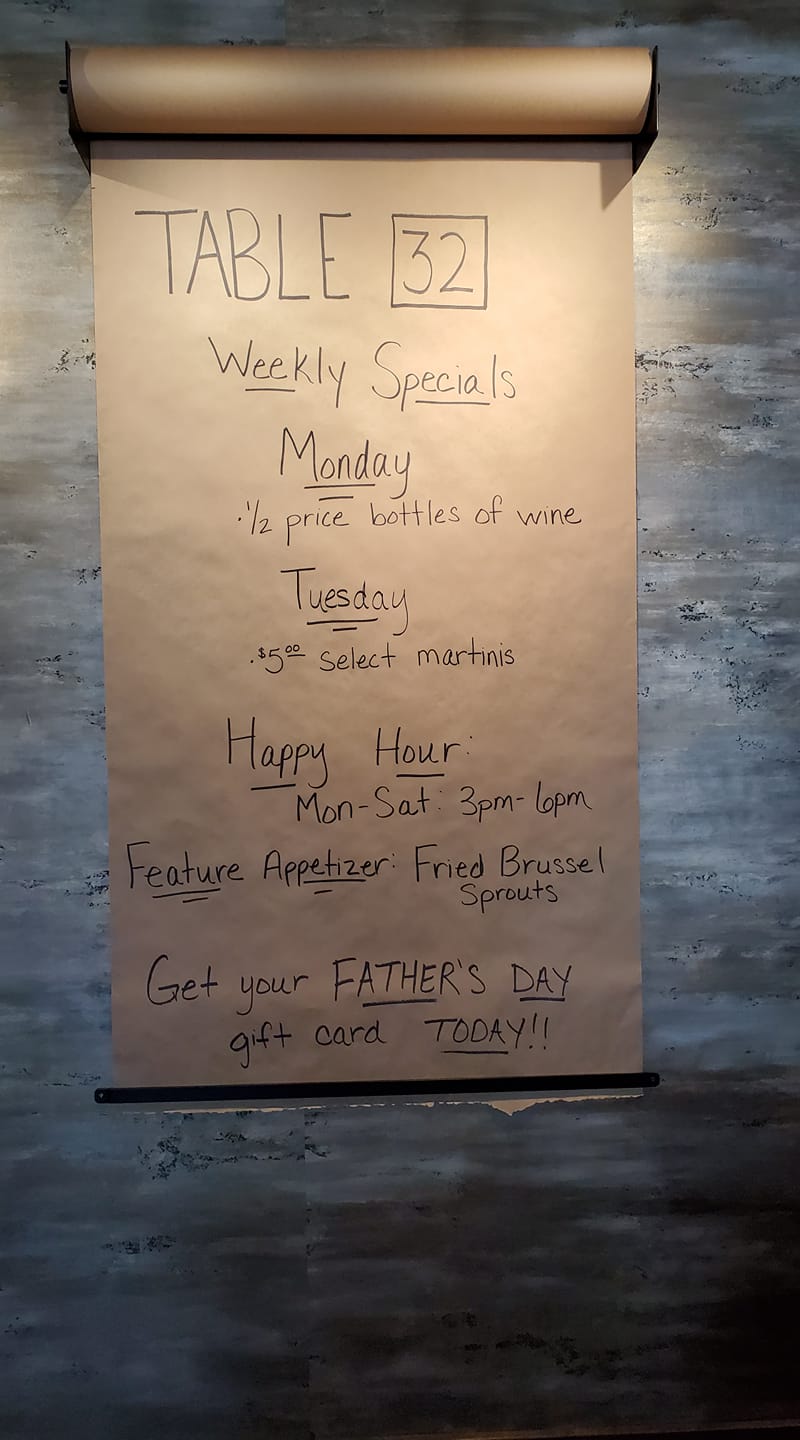 TABLE 32
Weekly Specials
Monday
·1/2 price bottles of wine
Tuesday
·$5⁰⁰ select martinis
Happy Hour:
Mon-Sat: 3pm-6pm
Feature Appetizer: Fried Brussel
Sprouts
Get your FATHER'S DAY
gift card TODAY!!